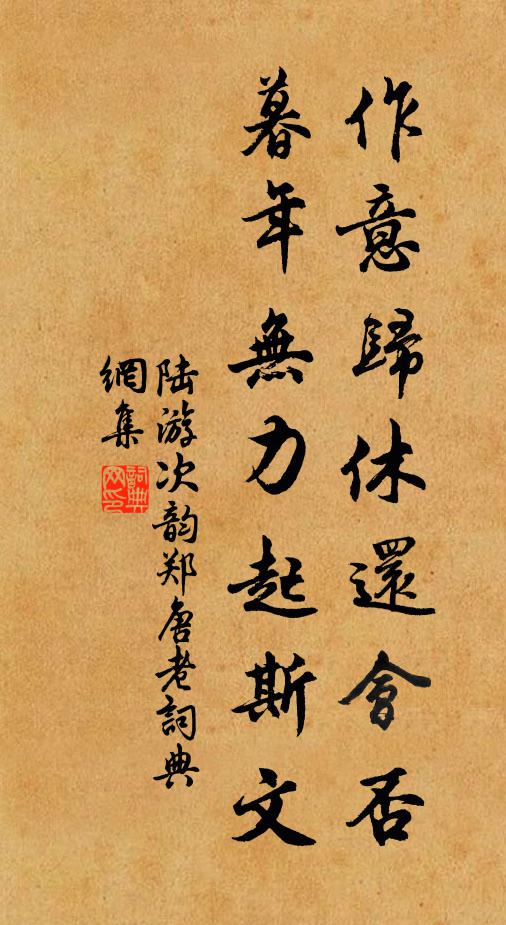 作意歸休還會否
暮年無力起斯文
陆游次韵郑唐老詞典
網集
詞典網印